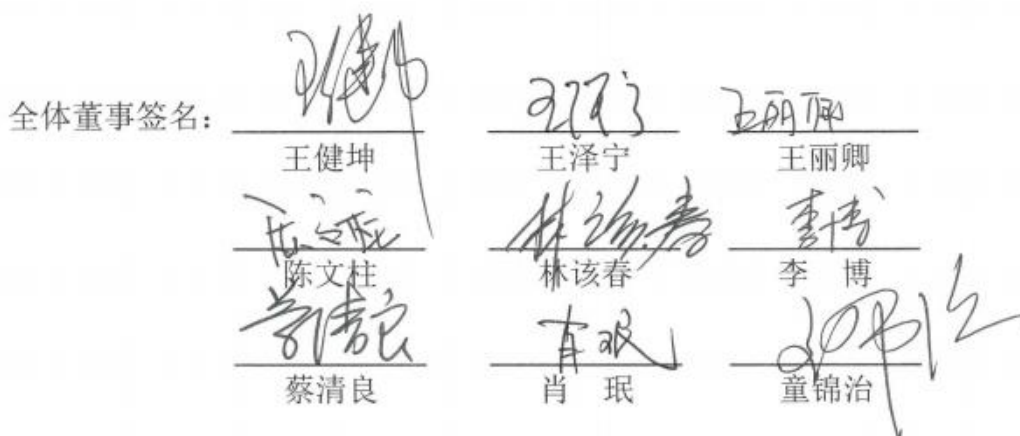 全体董事签名：
王健坤 王泽宁 王丽卿
陈文柱 林该春 李博
蔡清良 肖珉 童锦治